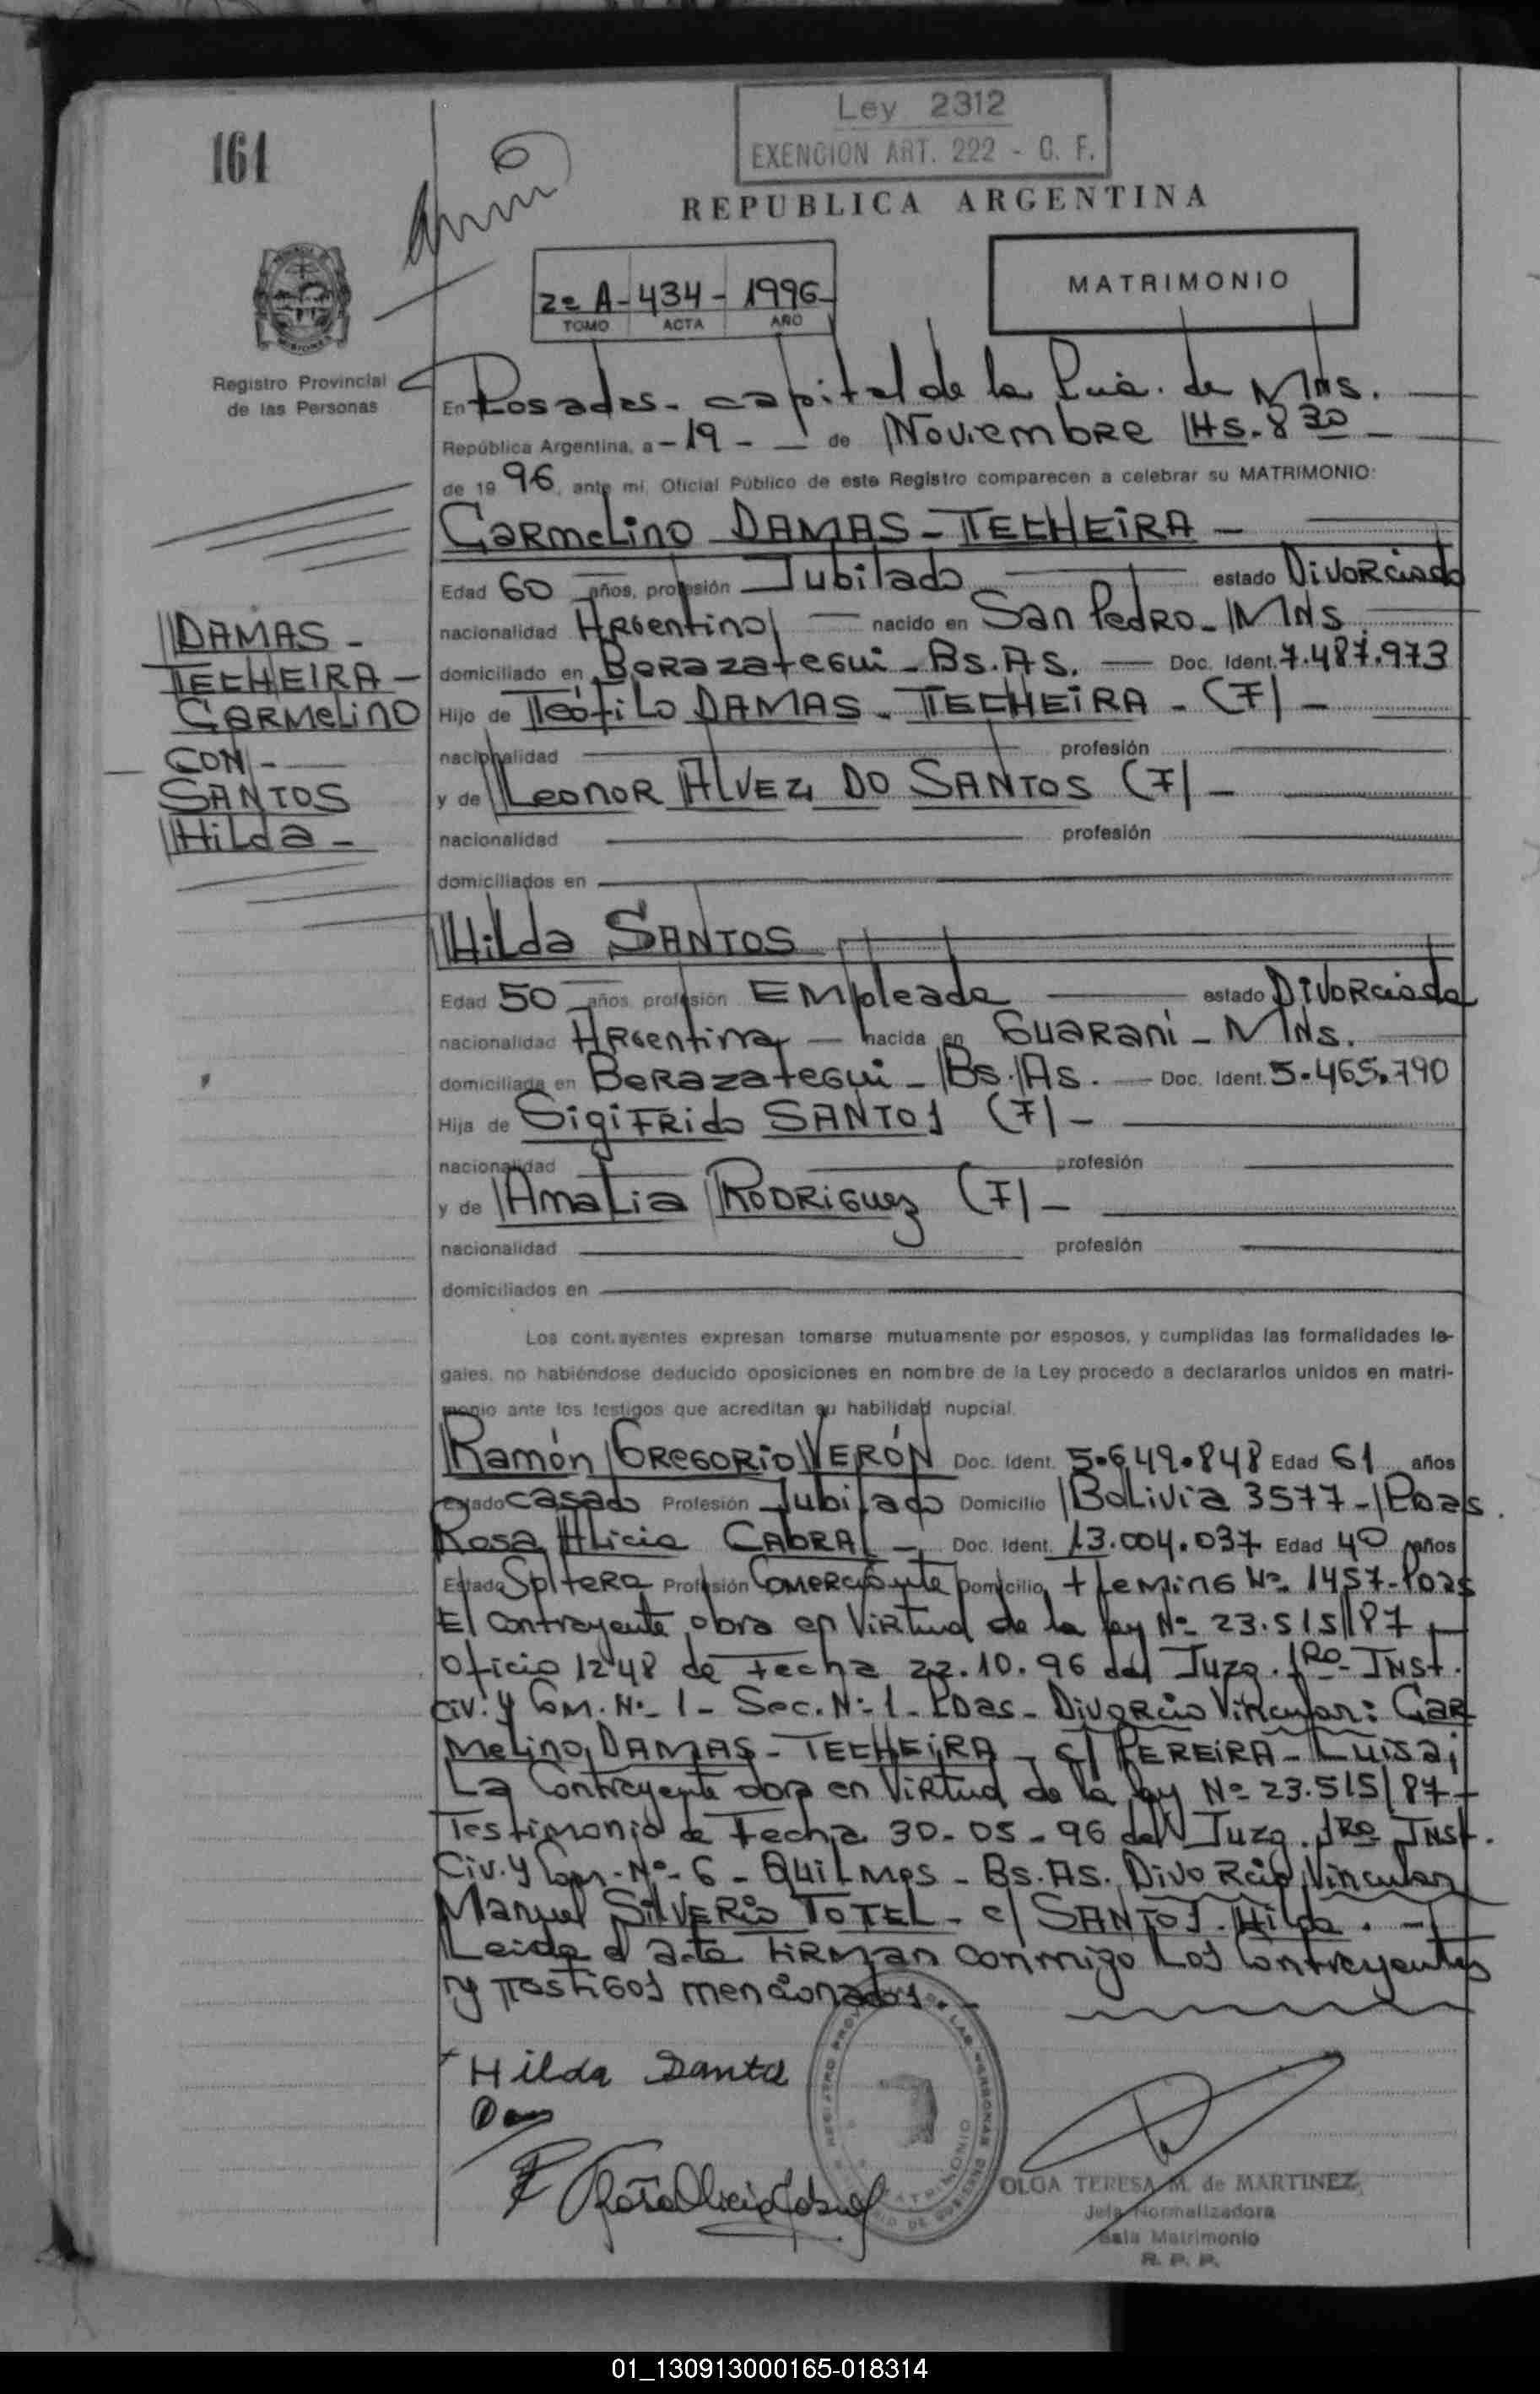 Ley 2312
EXENCION ART. 222 - C. F.
161
REPUBLICA ARGENTINA
MATRIMONIO
2º A - 434 - 1996
TOMO ACTA AÑO
Registro Provincial
de las Personas
En Posadas - capital de la Pcia. de Mns.
República Argentina, a - 19 - de Noviembre Hs. 8 30
de 19 96, ante mi, Oficial Público de este Registro comparecen a celebrar su MATRIMONIO:
Carmelino DAMAS - TECHEIRA -
Edad 60 años, profesión Jubilado estado Divorciado
nacionalidad Argentino nacido en San Pedro - Mns
domiciliado en Berazategui - Bs. As. Doc. Ident. 7.487.973
Hijo de Teófilo DAMAS - TECHEIRA - (F) -
nacionalidad profesión
y de Leonor ALVEZ DO SANTOS (F) -
nacionalidad profesión
domiciliados en
DAMAS -
TECHEIRA -
CARMELINO
CON -
SANTOS
Hilda -
Hilda SANTOS
Edad 50 años profesión Empleada estado Divorciada
nacionalidad Argentina nacida en Guaraní - Mns.
domiciliada en Berazategui - Bs. As. Doc. Ident. 5.465.790
Hija de Sigifrido SANTOS (F) -
nacionalidad profesión
y de Amalia RODRIGUEZ (F) -
nacionalidad profesión
domiciliados en
Los contrayentes expresan tomarse mutuamente por esposos, y cumplidas las formalidades le-
gales, no habiéndose deducido oposiciones en nombre de la Ley procedo a declararlos unidos en matri-
monio ante los testigos que acreditan su habilidad nupcial.
Ramón GREGORIO VERÓN Doc. Ident. 5.649.848 Edad 61 años
Estado casado Profesión Jubilado Domicilio Bolivia 3577 - Pdas.
Rosa Alicia CABRAL - Doc. Ident. 13.004.037 Edad 40 años
Estado Soltera Profesión Comerciante Domicilio Fleming Nº 1457 - Pdas
El contrayente obra en Virtud de la ley Nº 23.515/87 -
Oficio 1248 de fecha 22.10.96 del Juzg. 1RO Inst.
Civ. y Com. Nº 1 - Sec. Nº 1 - Pdas - Divorcio Vincular: Car
melino DAMAS - TECHEIRA - c/ PEREIRA - Luisa;
La Contrayente obra en Virtud de la ley Nº 23.515/87 -
Testimonio de fecha 30-05-96 del Juzg. 1RO Inst.
Civ. y Com. Nº 6 - Quilmes - Bs. As. Divorcio Vincular
Manuel SILVERIO TOTEL - c/ SANTOS Hilda. -
Leida el acta firman conmigo los contrayentes
y testigos mencionados. -
Hilda Santo
Rosa Alicia Cabral
REGISTRO PROVINCIAL DE LAS PERSONAS
MATRIMONIO
OLGA TERESA M. de MARTINEZ
Jefa Normalizadora
Sala Matrimonio
R. P. P.
01_130913000165-018314